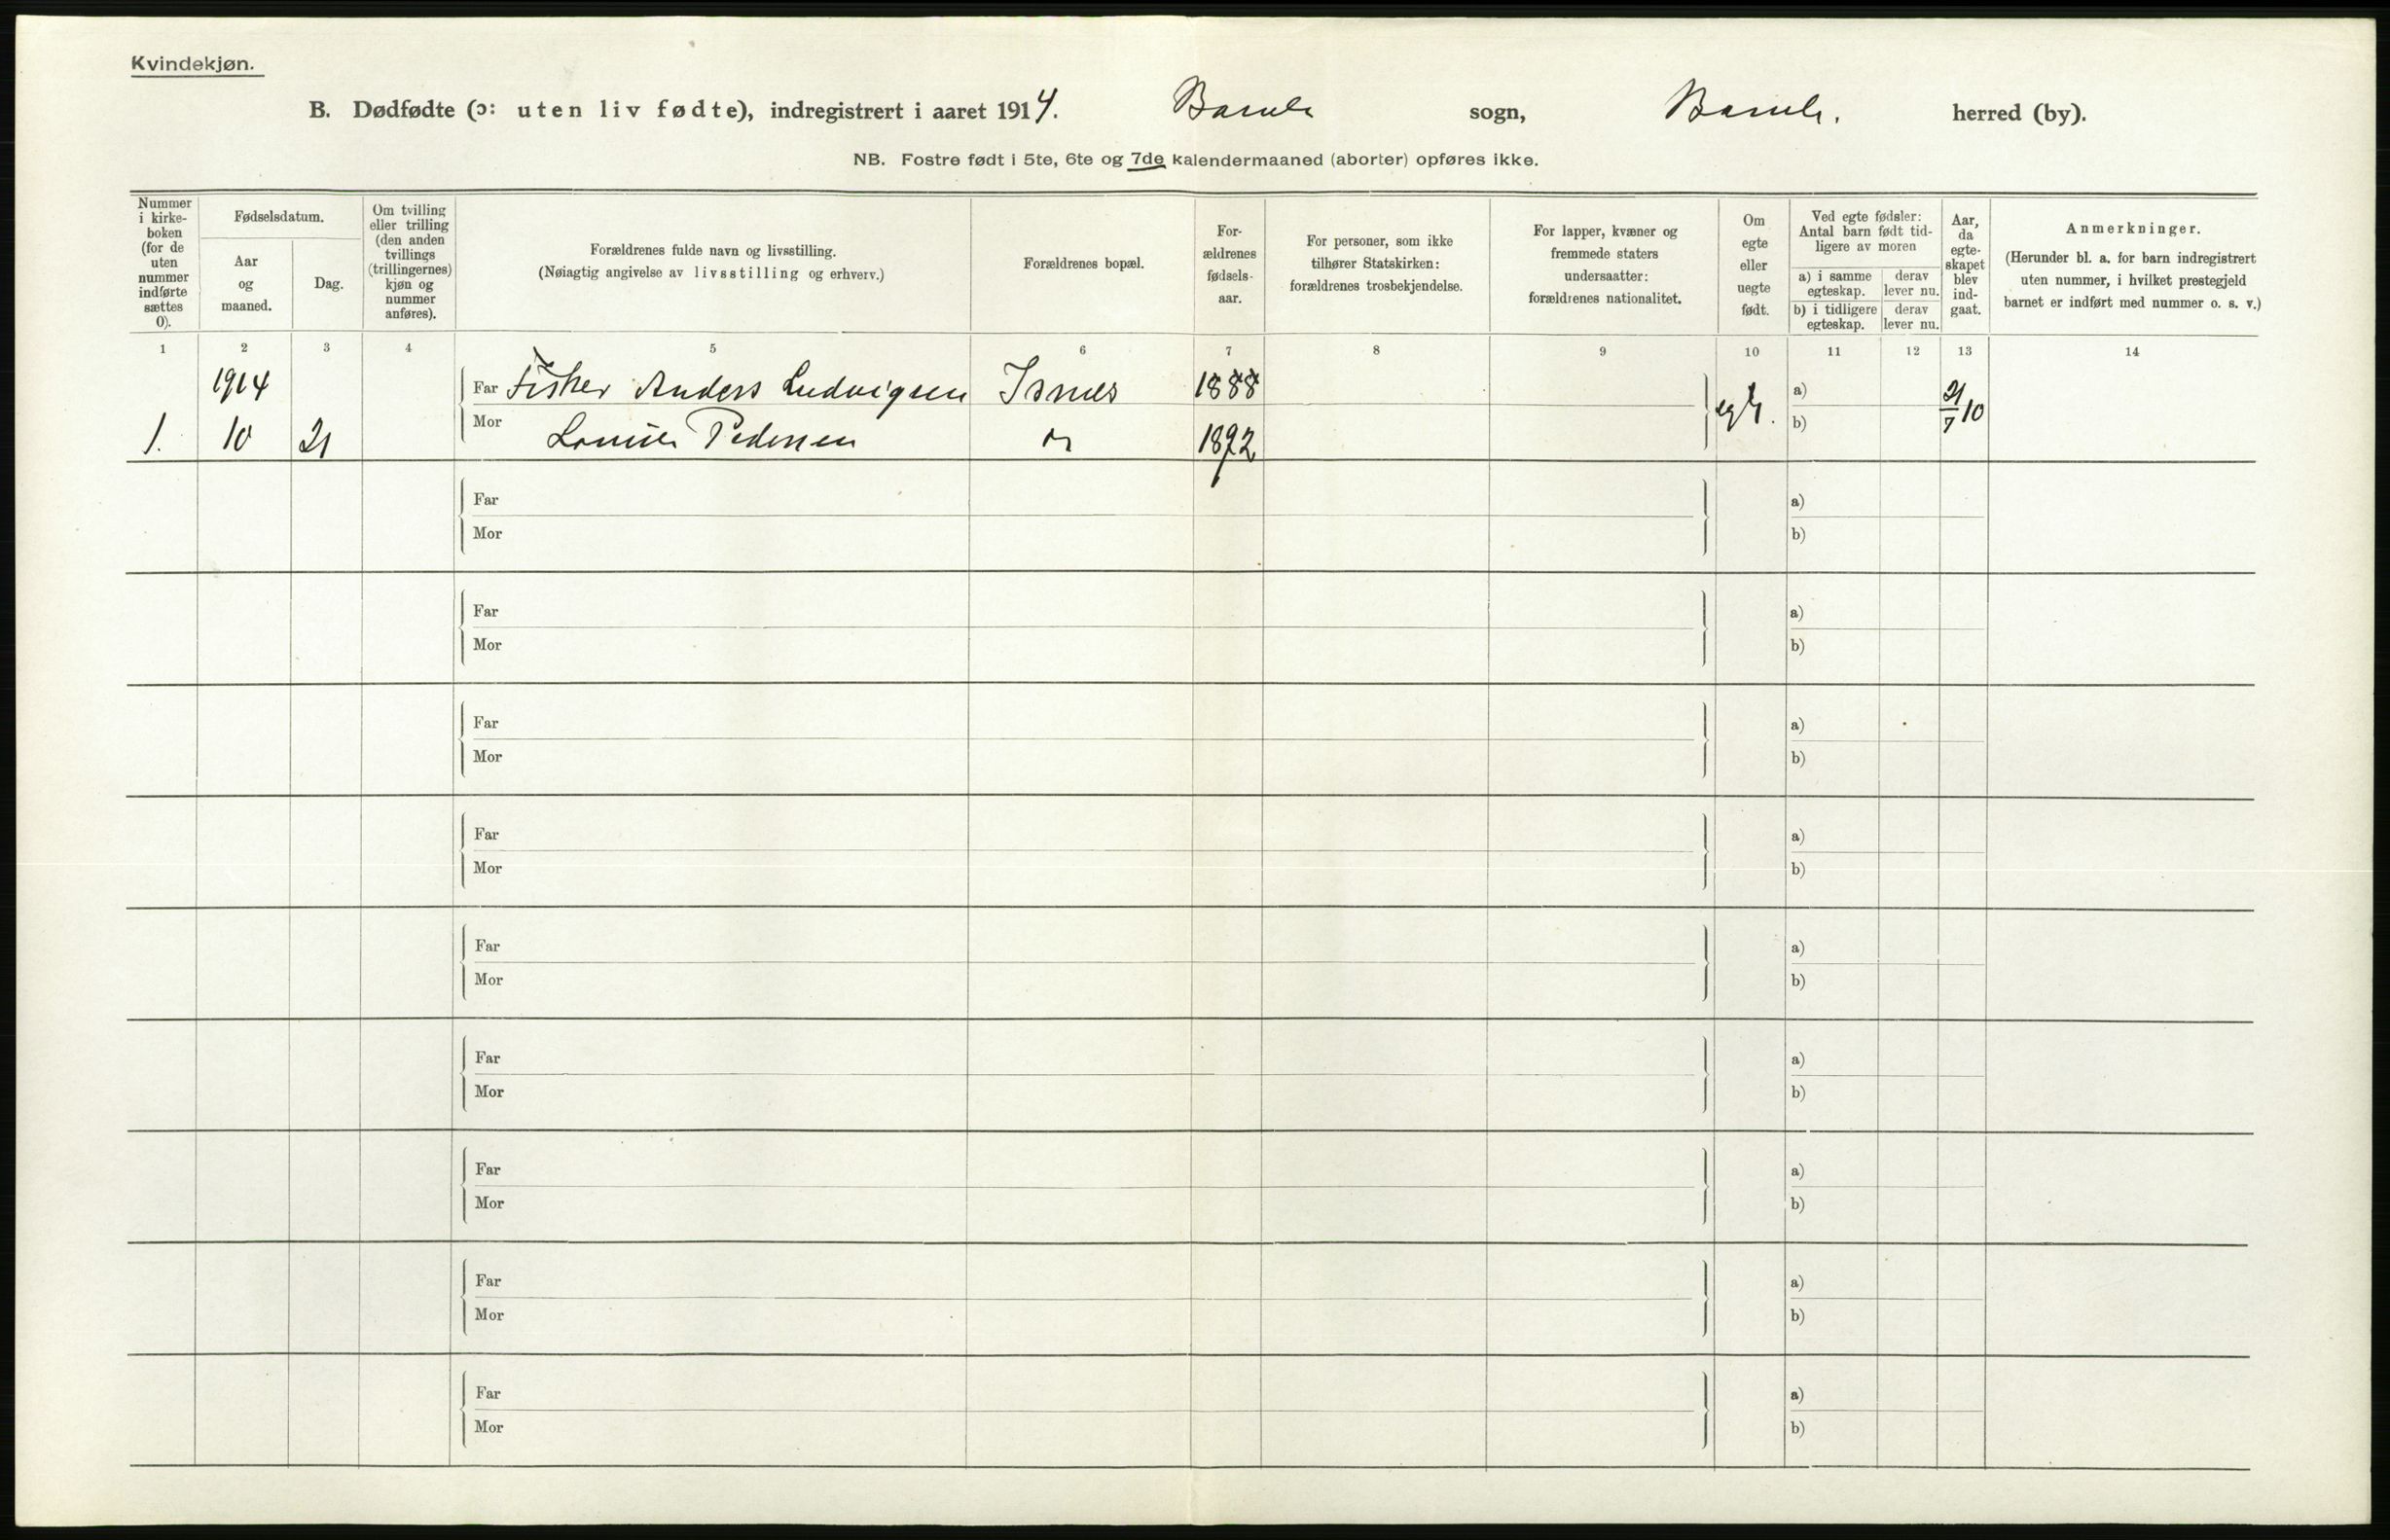 Kvindekjøn.
B. Dødfødte (ɔ: uten liv fødte), indregistrert i aaret 1914. Bamle sogn, Bamle. herred (by).
NB. Fostre født i 5te, 6te og 7de kalendermaaned (aborter) opføres ikke.
Nummer
i kirke-
boken
(for de
uten
nummer
indførte
sættes
0).
Fødselsdatum.
Aar
og
maaned.
Dag.
Om tvilling
eller trilling
(den anden
tvillings
(trillingernes)
kjøn og
nummer
anføres).
Forældrenes fulde navn og livsstilling.
(Nøiagtig angivelse av livsstilling og erhverv.)
Forældrenes bopæl.
For-
ældrenes
fødsels-
aar.
For personer, som ikke
tilhører Statskirken:
forældrenes trosbekjendelse.
For lapper, kvæner og
fremmede staters
undersaatter:
forældrenes nationalitet.
Om
egte
eller
uegte
født.
Ved egte fødsler:
Antal barn født tid-
ligere av moren
a) i samme
egteskap.
derav
lever nu.
b) i tidligere
egteskap.
derav
lever nu.
Aar,
da
egte-
skapet
blev
ind-
gaat.
Anmerkninger.
(Herunder bl. a. for barn indregistrert
uten nummer, i hvilket prestegjeld
barnet er indført med nummer o. s. v.)
1 2 3 4 5 6 7 8 9 10 11 12 13 14
1914 Far Fisker Anders Ludvigsen 1888 a)
1. 10 21 Mor Louise Pedersen 1892 egte. b) 21/7 10
Far a)
Mor b)
Far a)
Mor b)
Far a)
Mor b)
Far a)
Mor b)
Far a)
Mor b)
Far a)
Mor b)
Far a)
Mor b)
Far a)
Mor b)
Far a)
Mor b)